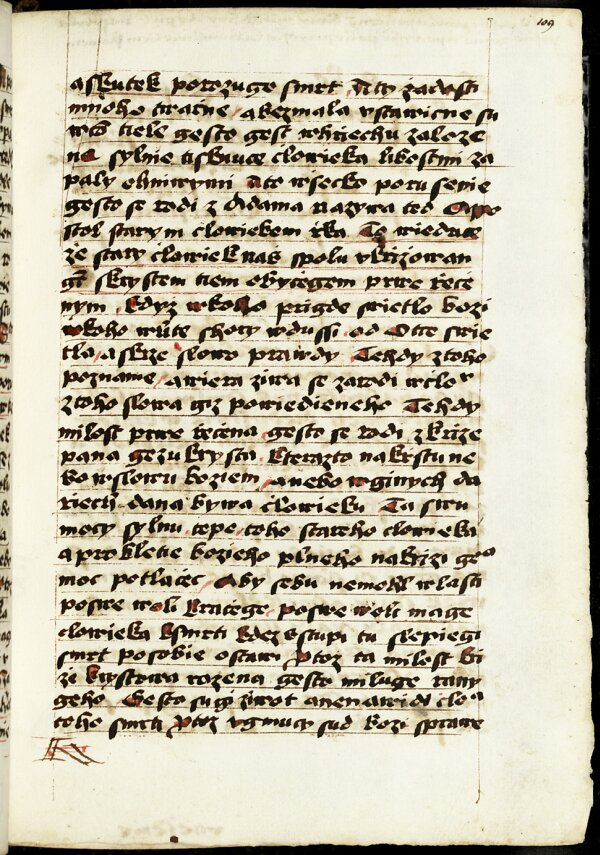 109
askutek porozuge smrt a ty zadosti
mnoho tratne abezmala vstawicne su
wtom tiele gesto gest whriechu zaloze
ne sylnie tiskuuce clowieka libostmi za
paly ohniwymi Ato wsecko porusenie
gesto se rodi z Adama nazywa teo Apo
stol starym clowiekem rka To wieduce
ze stary clowiek nas spolu vkrizowan
gt skrystem tiem obyczegem prwe rece
nym kdyz wkoho prigde swietlo bozi
wkoho wnite shory wdussi od Otce swie
tla askrze slowo prawdy Tehdy ztoho
poznanie awiera ziwa se zarodi wclo
ztoho slowa giz powiedieneho Tehdy
milost prwe recena gesto se rodi zkrize
pana gezukrysta kterazto nakrstu ne
bo wslowu boziem anebo wginych da
riech dana bywa clowieku Ta swu
mocy sylnu tepe toho stareho clowieka
aprokletie bozieho plneho nakrizi geo
moc potlacec Aby sebu nemohl wlasti
poswe woli kracege poswe woli mage
clowieka ksmrti kdez wstupi tu slepiegi
smrt posobie ostawi protoz ta milost bi
ze krystowa rozena gesto miluge rany
geho Gesto su gi ziwot anenawidi clo
toho smrti protoz vgmucy sud bozi sprawe